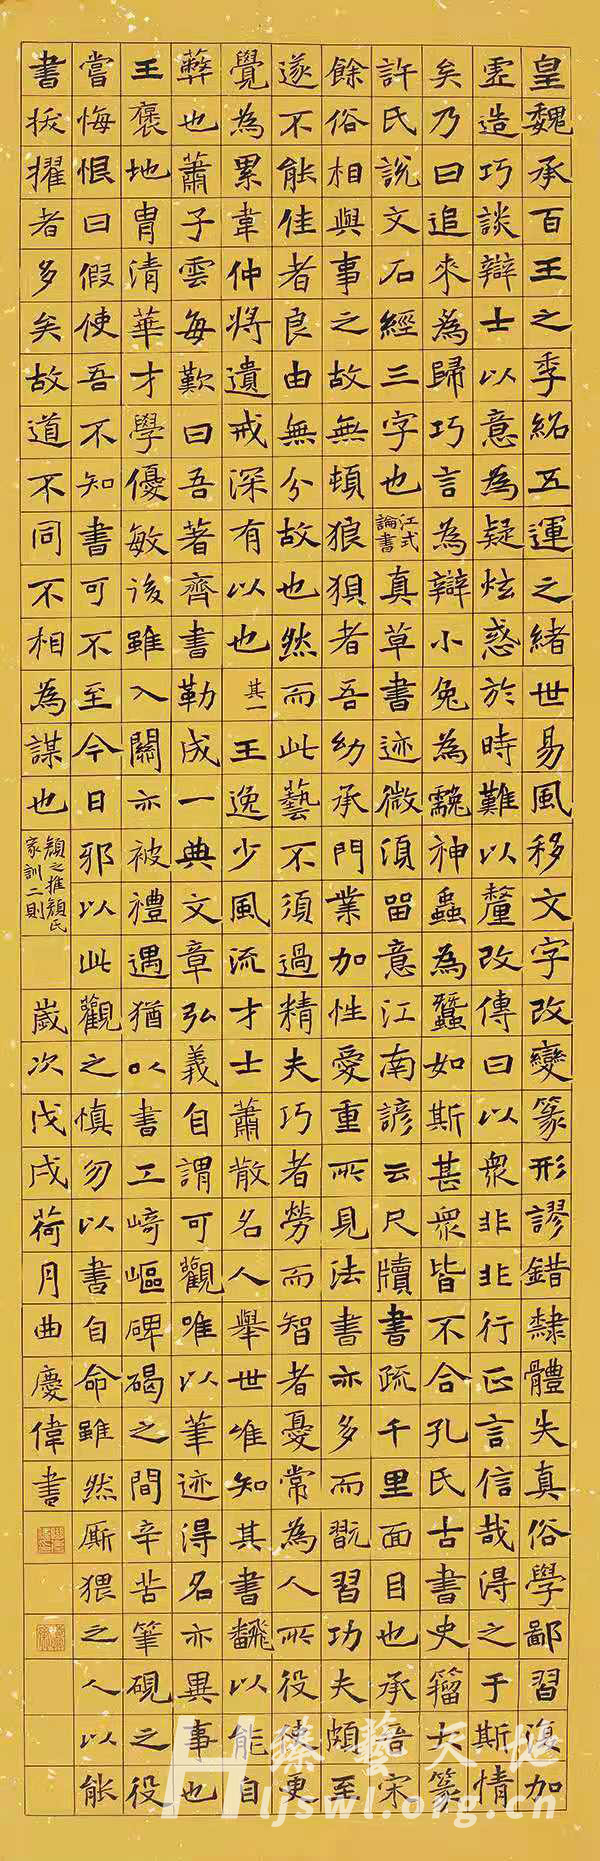 皇魏承百王之季紹五運之緒世易風移文字改變篆形謬錯隸體失真俗學鄙習復加
虛造巧談辯士以意為疑炫惑於時難以釐改傳曰以眾非非行正言信哉得之于斯情
矣乃曰追來為歸巧言為辯小兔為䨲神蟲為蠶如斯甚眾皆不合孔氏古書史籀大篆
許氏說文石經三字也江式論書真草書迹微須留意江南諺云尺牘書疏千里面目也承晉宋
餘俗相與事之故無頓狼狽者吾幼承門業加性愛重所見法書亦多而翫習功夫頗至
遂不能佳者良由無分故也然而此藝不須過精夫巧者勞而智者憂常為人所役使更
覺為累韋仲將遺戒深有以也其一王逸少風流才士蕭散名人舉世唯知其書翻以能自
弊也蕭子雲每歎曰吾著齊書勒成一典文章弘義自謂可觀唯以筆迹得名亦異事也
王褒地胄清華才學優敏後雖入關亦被禮遇猶以書工崎嶇碑碣之間辛苦筆硯之役
嘗悔恨曰假使吾不知書可不至今日邪以此觀之慎勿以書自命雖然厮猥之人以能
書拔擢者多矣故道不同不相為謀也顏之推顏氏家訓二則歲次戊戌荷月曲慶偉書
臻藝天地
Hljswl.org.cn